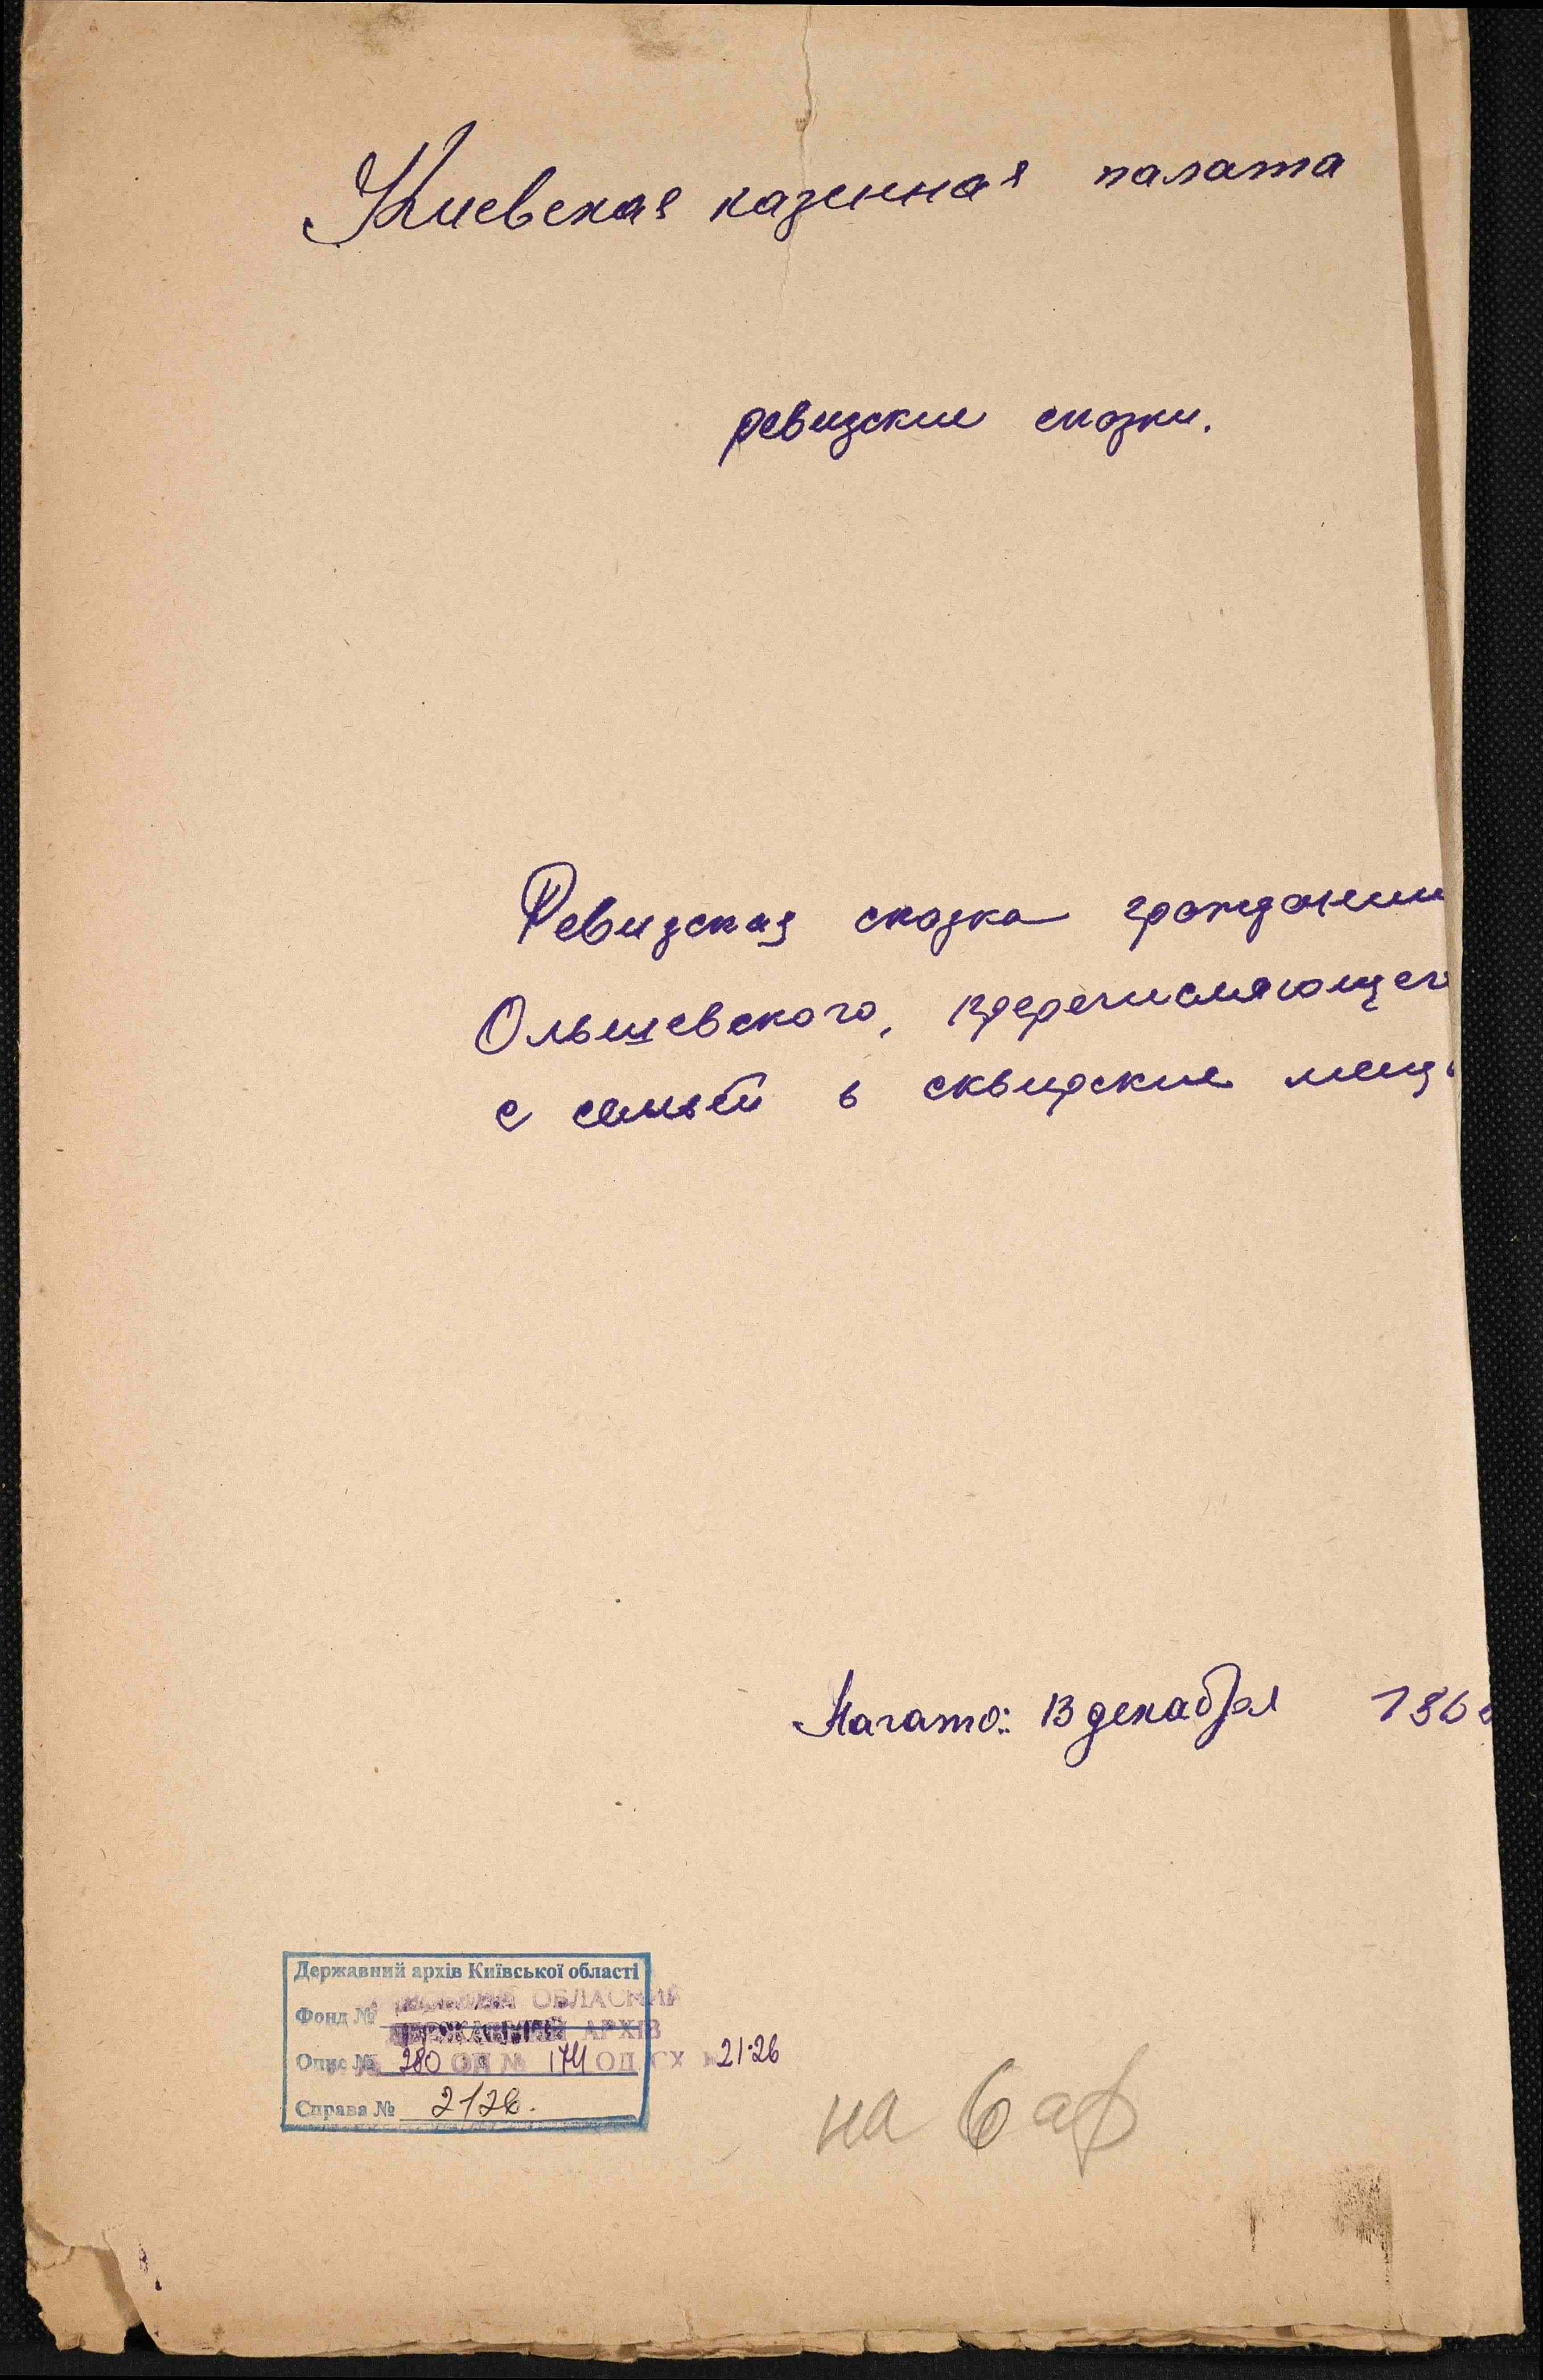 Киевская казенная палата
ревизские сказки.
Ревизская сказка граждонин
Ольшевского, перечисляющег
с семьей в сквирские мещ
Начато: 13 декабря 186
Державний архів Київської області
Фонд № ОБЛАСНИЙ
АРХІВ
Опис № 280 ОП № 174 ОД СХ 2126
Справа № 2126.
на 6 арк